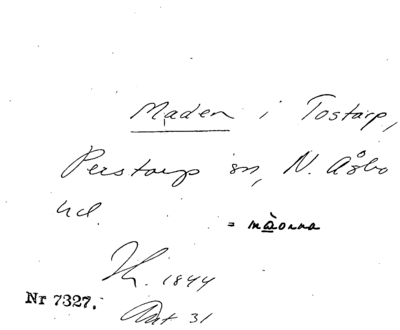 Maden i Tostarp,
Perstorp sn, N. Åsbo
hd.
= màonna
1844
Nr 7327.
Akt 31